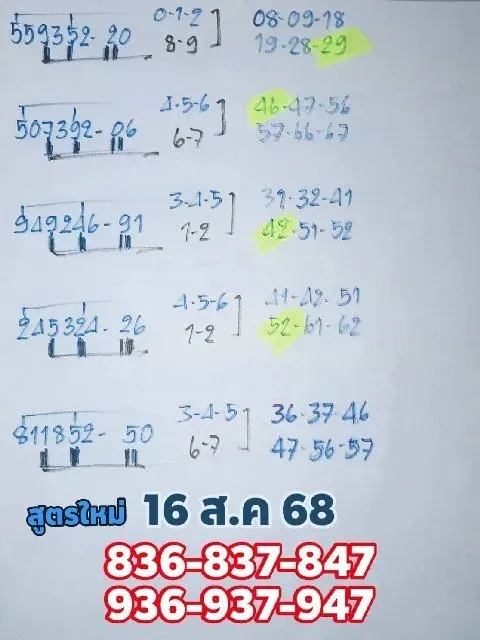 559352-20 0-1-2 08-09-18
8-9 19-28-29
507392-06 4-5-6 46-47-56
6-7 57-66-67
949246-91 3-4-5 31-32-41
1-2 42-51-52
245324-26 4-5-6 41-42-51
1-2 52-61-62
811852-50 3-4-5 36-37-46
6-7 47-56-57
สูตรใหม่ 16 ส.ค 68
836-837-847
936-937-947